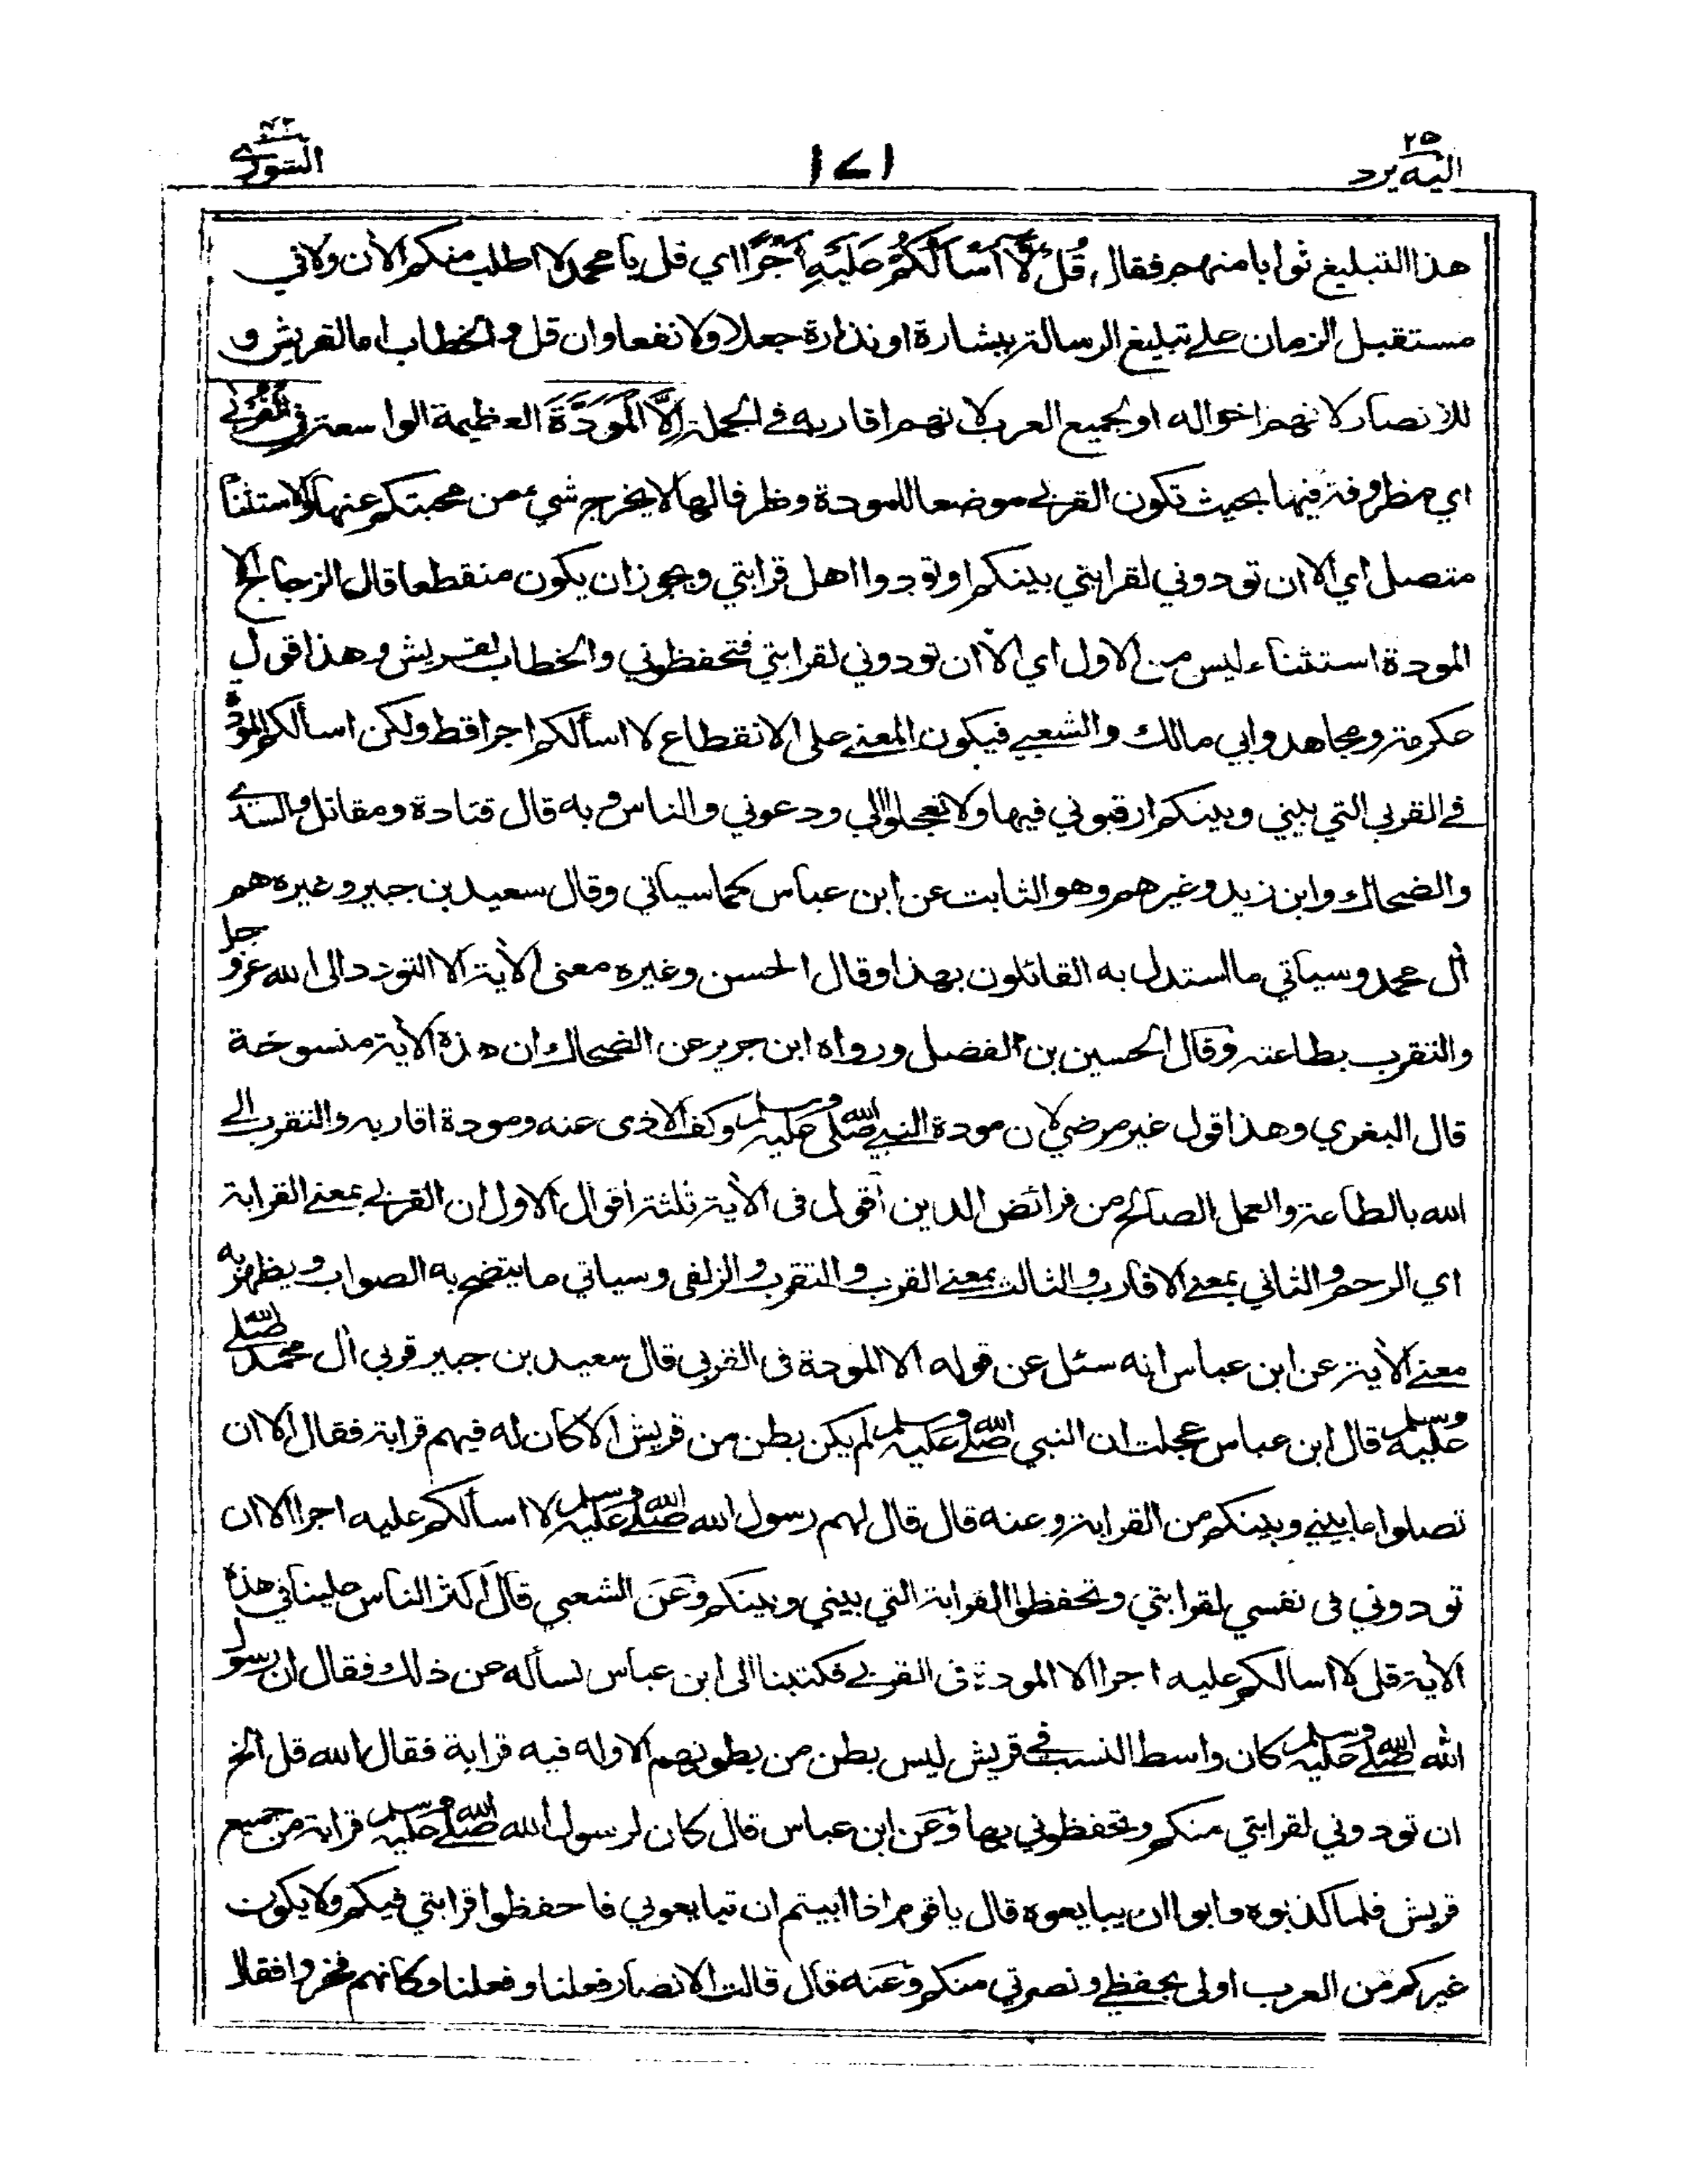 ٢٥
اليه يرد
١٧١
٤٢
الشورى
هذا التبليغ ثوابا منهم فقال قُلْ لَّا أَسْأَلُكُمْ عَلَيْهِ أَجْرًا اي قل يا محمد لا اطلب منكم الأن ولا في
مستقبل الزمان على تبليغ الرسالة ببشارة او نذارة جعلا ولا نفعا وان قل والخطاب اما لقريش و
للانصار لانهم اخواله او لجميع العرب لانهم اقاربه في الجملة إِلَّا الْمَوَدَّةَ العظيمة الواسعة في الْقُرْبٰى
اي مظروفة فيها بحيث تكون القربى موضعا للمودة وظرفا لها لا يخرج شيء من محبتكم عنها والاستثناء
متصل اي الا ان تودوني لقرابتي بينكم او تودوا اهل قرابتي ويجوز ان يكون منقطعا قال الزجاج الا
المودة استثناء ليس من الاول اي الا ان تودوني لقرابتي فتحفظوني والخطاب لقريش وهذا قول
عكرمة ومجاهد وابي مالك والشعبي فيكون المعنى على الانقطاع لا اسألكم اجرا قط ولكن اسألكم المودة
في القربى التي بيني وبينكم ارقبوني فيها ولا تعجلوا الي ودعوني والناس وبه قال قتادة ومقاتل والسدي
والضحاك وابن زيد وغيرهم وهو الثابت عن ابن عباس كما سياتي وقال سعيد بن جبير وغيره هم
أل محمد وسياتي ما استدل به القائلون بهذا وقال الحسن وغيره معنى الأية الا التودد الى الله عز وجل
والتقرب بطاعته وقال الحسين بن الفضل ورواه ابن جرير عن الضحاك ان هذه الأية منسوخة
قال البغوي وهذا قول غير مرضي لان مودة النبي صلى الله عليه وسلم وكف الاذى عنه ومودة اقاربه والتقرب الى
الله بالطاعة والعمل الصالح من فرائض الدين أقول في الأية ثلثة اقوال الاول ان القربى بمعنى القرابة
اي الرحم والثاني بمعنى الاقارب والثالث بمعنى القرب والتقرب والزلفى وسياتي ما يتضح به الصواب ويظهر به
معنى الأية عن ابن عباس انه سئل عن قوله الا المودة في القربى قال سعيد بن جبير قربى أل محمد صلى الله
عليه وسلم قال ابن عباس عجلت ان النبي صلى الله عليه وسلم لم يكن بطن من قريش الا كان له فيهم قرابة فقال الا ان
تصلوا ما بيني وبينكم من القرابة وعنه قال قال لهم رسول الله صلى الله عليه وسلم لا اسألكم عليه اجرا الا ان
تودوني في نفسي لقرابتي وتحفظوا القرابة التي بيني وبينكم وعن الشعبي قال اكثر الناس علينا في هذه
الأية قل لا اسالكم عليه اجرا الا المودة في القربى فكتبنا الى ابن عباس نسأله عن ذلك فقال ان رسول
الله صلى الله عليه وسلم كان واسط النسب في قريش ليس بطن من بطونهم الا وله فيه قرابة فقال الله قل الخ
ان تودوني لقرابتي منكم وتحفظوني بها وعن ابن عباس قال كان لرسول الله صلى الله عليه وسلم قرابة من جميع
قريش فلما كذبوه وابوا ان يبايعوه قال يا قوم اذا ابيتم ان تبايعوني فاحفظوا قرابتي فيكم ولا يكون
غيركم من العرب اولى بحفظي ونصرتي منكم وعنه قال قالت الانصار فعلنا وفعلنا وكانهم فخروا فقال